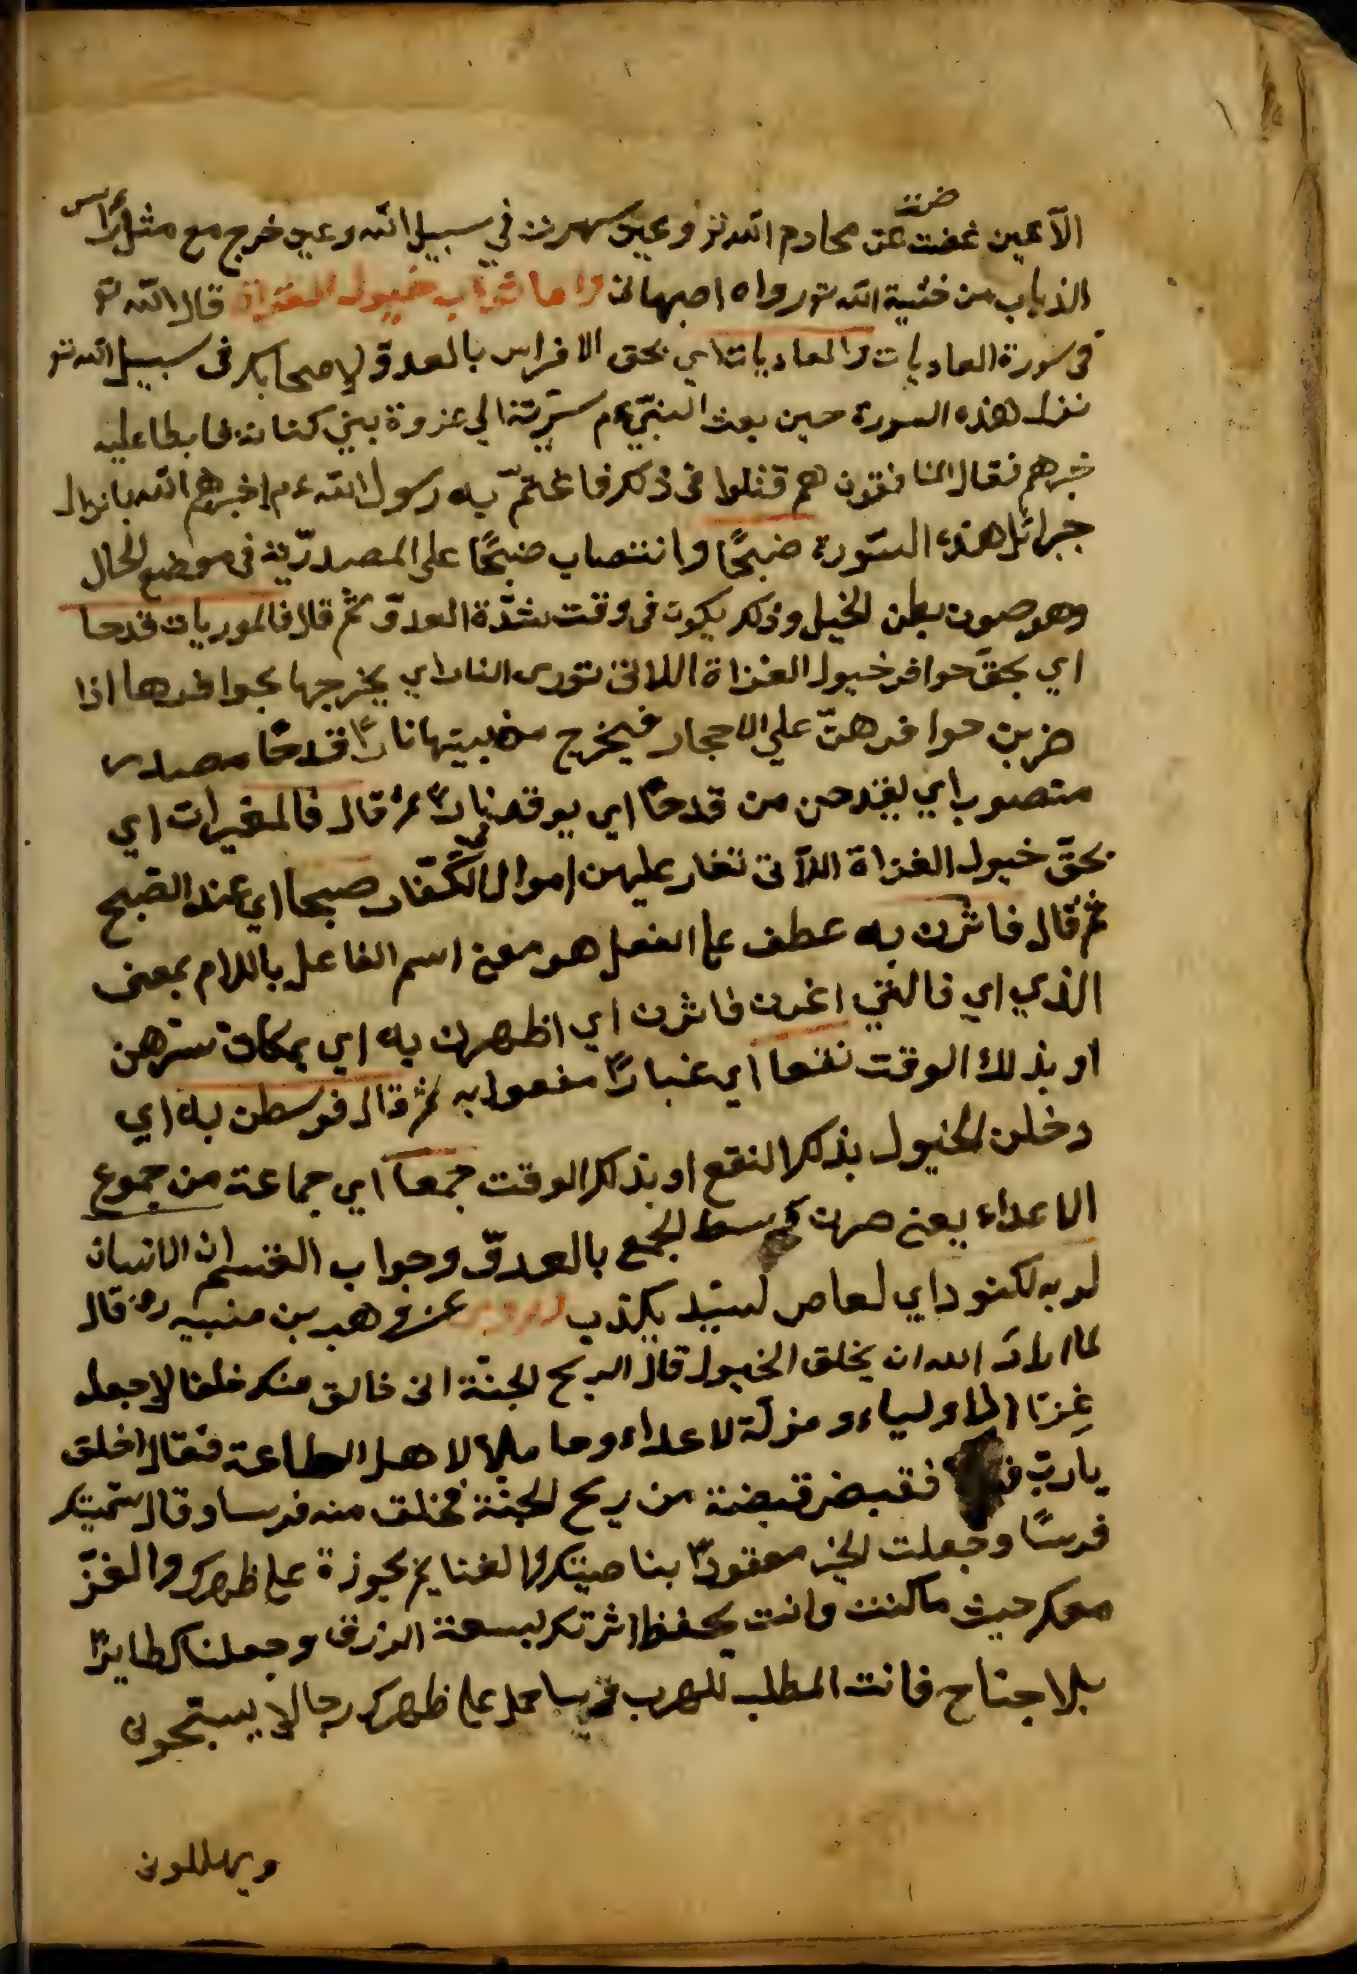 الا عين غضت عن محارم الله تع وعين سهرت في سبيل الله وعين خرج مع مثل رأس
الذباب من خشية الله تع رواه اصبهانى واما ثواب خيول الغزاة قال الله تع
فى سورة العاديات والعاديات اي بحق الافراس بالعدو لاصحابك فى سبيل الله تع
نزل هذه السورة حين بعث النبي عم سرية الي غزوة بني كنانة فابطا عليه
خبرهم فقال المنافقون هم قتلوا فى ذلك فاغتم به رسول الله عم اخبرهم الله بانزال
جبرائل هذه السورة ضبحًا وانتصاب ضبحًا على المصدرية فى موضع الحال
وهو صوت بطن الخيل وذلك يكون فى وقت شدّة العدوّ ثم قال فالموريات قدحا
اي بحق حوافر خيول الغزاة اللاتى تورى النار اي يخرجها بحوافرها اذا
ضربن حوافرهنّ علي الاحجار فيخرج من بينها نارًا قدحًا مصدر
منصوب اي يقدحن من قدحًا اي يوقد نارًا ثم قال فالمغيرات اي
بحقّ خيول الغزاة اللآتى تغار عليهن اموال الكفّار صبحا اي عند الصبح
ثم قال فاثرن به عطف على الفعل هو معنى اسم الفاعل باللام بمعنى
الذي اي فالتي اغرن فاثرن اي اظهرن به اي بمكان سترهن
او بذلك الوقت نقعا اي غبارًا مفعول به ثم قال فوسطن به اي
دخلن الخيول بذلك النقع او بذلك الوقت جمعا اي جماعة من جموع
الاعداء يعنى صرن فى وسط الجمع بالعدوّ وجواب القسم ان الانسان
لربه لكنود اي لعاص لسيّد يكذب وروى عن وهب بن منبيه رض قال
لما اراد الله ان يخلق الخيول قال لريح الجنّة انى خالق منك خلقا لاجعله
عِزّا لاولياء ومذلّة لاعداء وحاملا لاهل الطاعة فقال اخلق
يا ربّ فقبض قبضة من ريح الجنّة فخلق منه فرسا وقال سمّيتك
فرسًا وجعلت الخير معقودًا بناصيتك والغنايم محوزة على ظهرك والعزّ
معك حيث ما كنت وانت بحفظ اثرتك لسعة الرزق وجعلناك طايرًا
بلا جناح فانت المطلب للهرب ساحمل على ظهرك رجالا يسبّحون
ويهللون